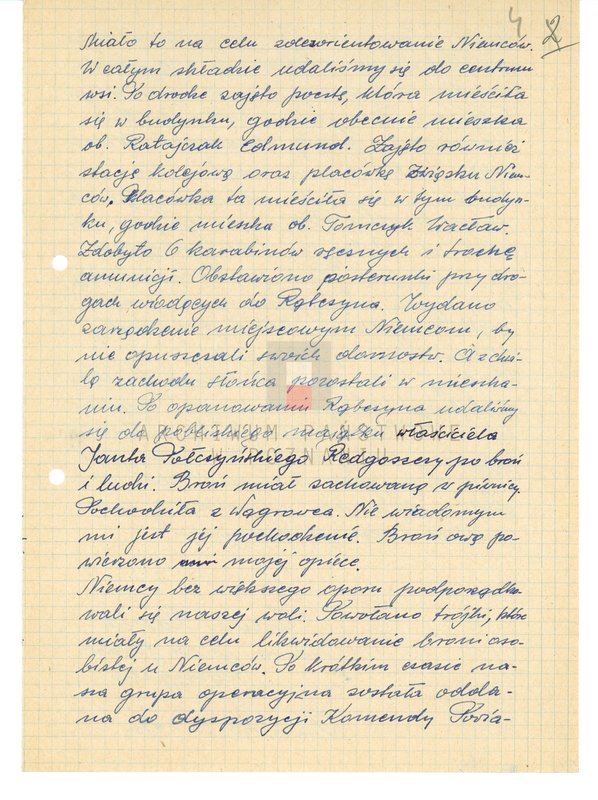 4 2
Miało to na celu zdezorientowanie Niemców.
W całym składzie udaliśmy się do centrum
wsi. Po drodze zajęto pocztę, która mieściła
się w budynku, gdzie obecnie mieszka
ob. Ratajczak Edmund. Zajęto również
stację kolejową oraz placówkę Związku Niem-
ców. Placówka ta mieściła się w tym budyn-
ku, gdzie mieszka ob. Tomczyk Wacław.
Zdobyto 6 karabinów ręcznych i trochę
amunicji. Obstawiono posterunki przy dro-
gach wiodących do Rąbczyna. Wydano
zarządzenie miejscowym Niemcom, by
nie opuszczali swoich domostw. A z chwi-
lą zachodu słońca pozostali w mieszka-
niu. Po opanowaniu Rąbczyna udaliśmy
się do pobliskiego majątku właściciela
Janta Połczyńskiego Redgoszcz po broń
i ludzi. Broń miał zachowaną w piwnicy.
Pochodziła z Wągrowca. Nie wiadomym
mi jest jej pochodzenie. Broń ową po-
wierzono mojej opiece.
Niemcy bez większego oporu podporządko
wali się naszej woli. Powołano trójki, które
miały na celu likwidowanie broni oso-
bistej u Niemców. Po krótkim czasie na-
sza grupa operacyjna została odda-
na do dyspozycji Komendy Powia-
ARCHIWUM PAŃSTWOWE